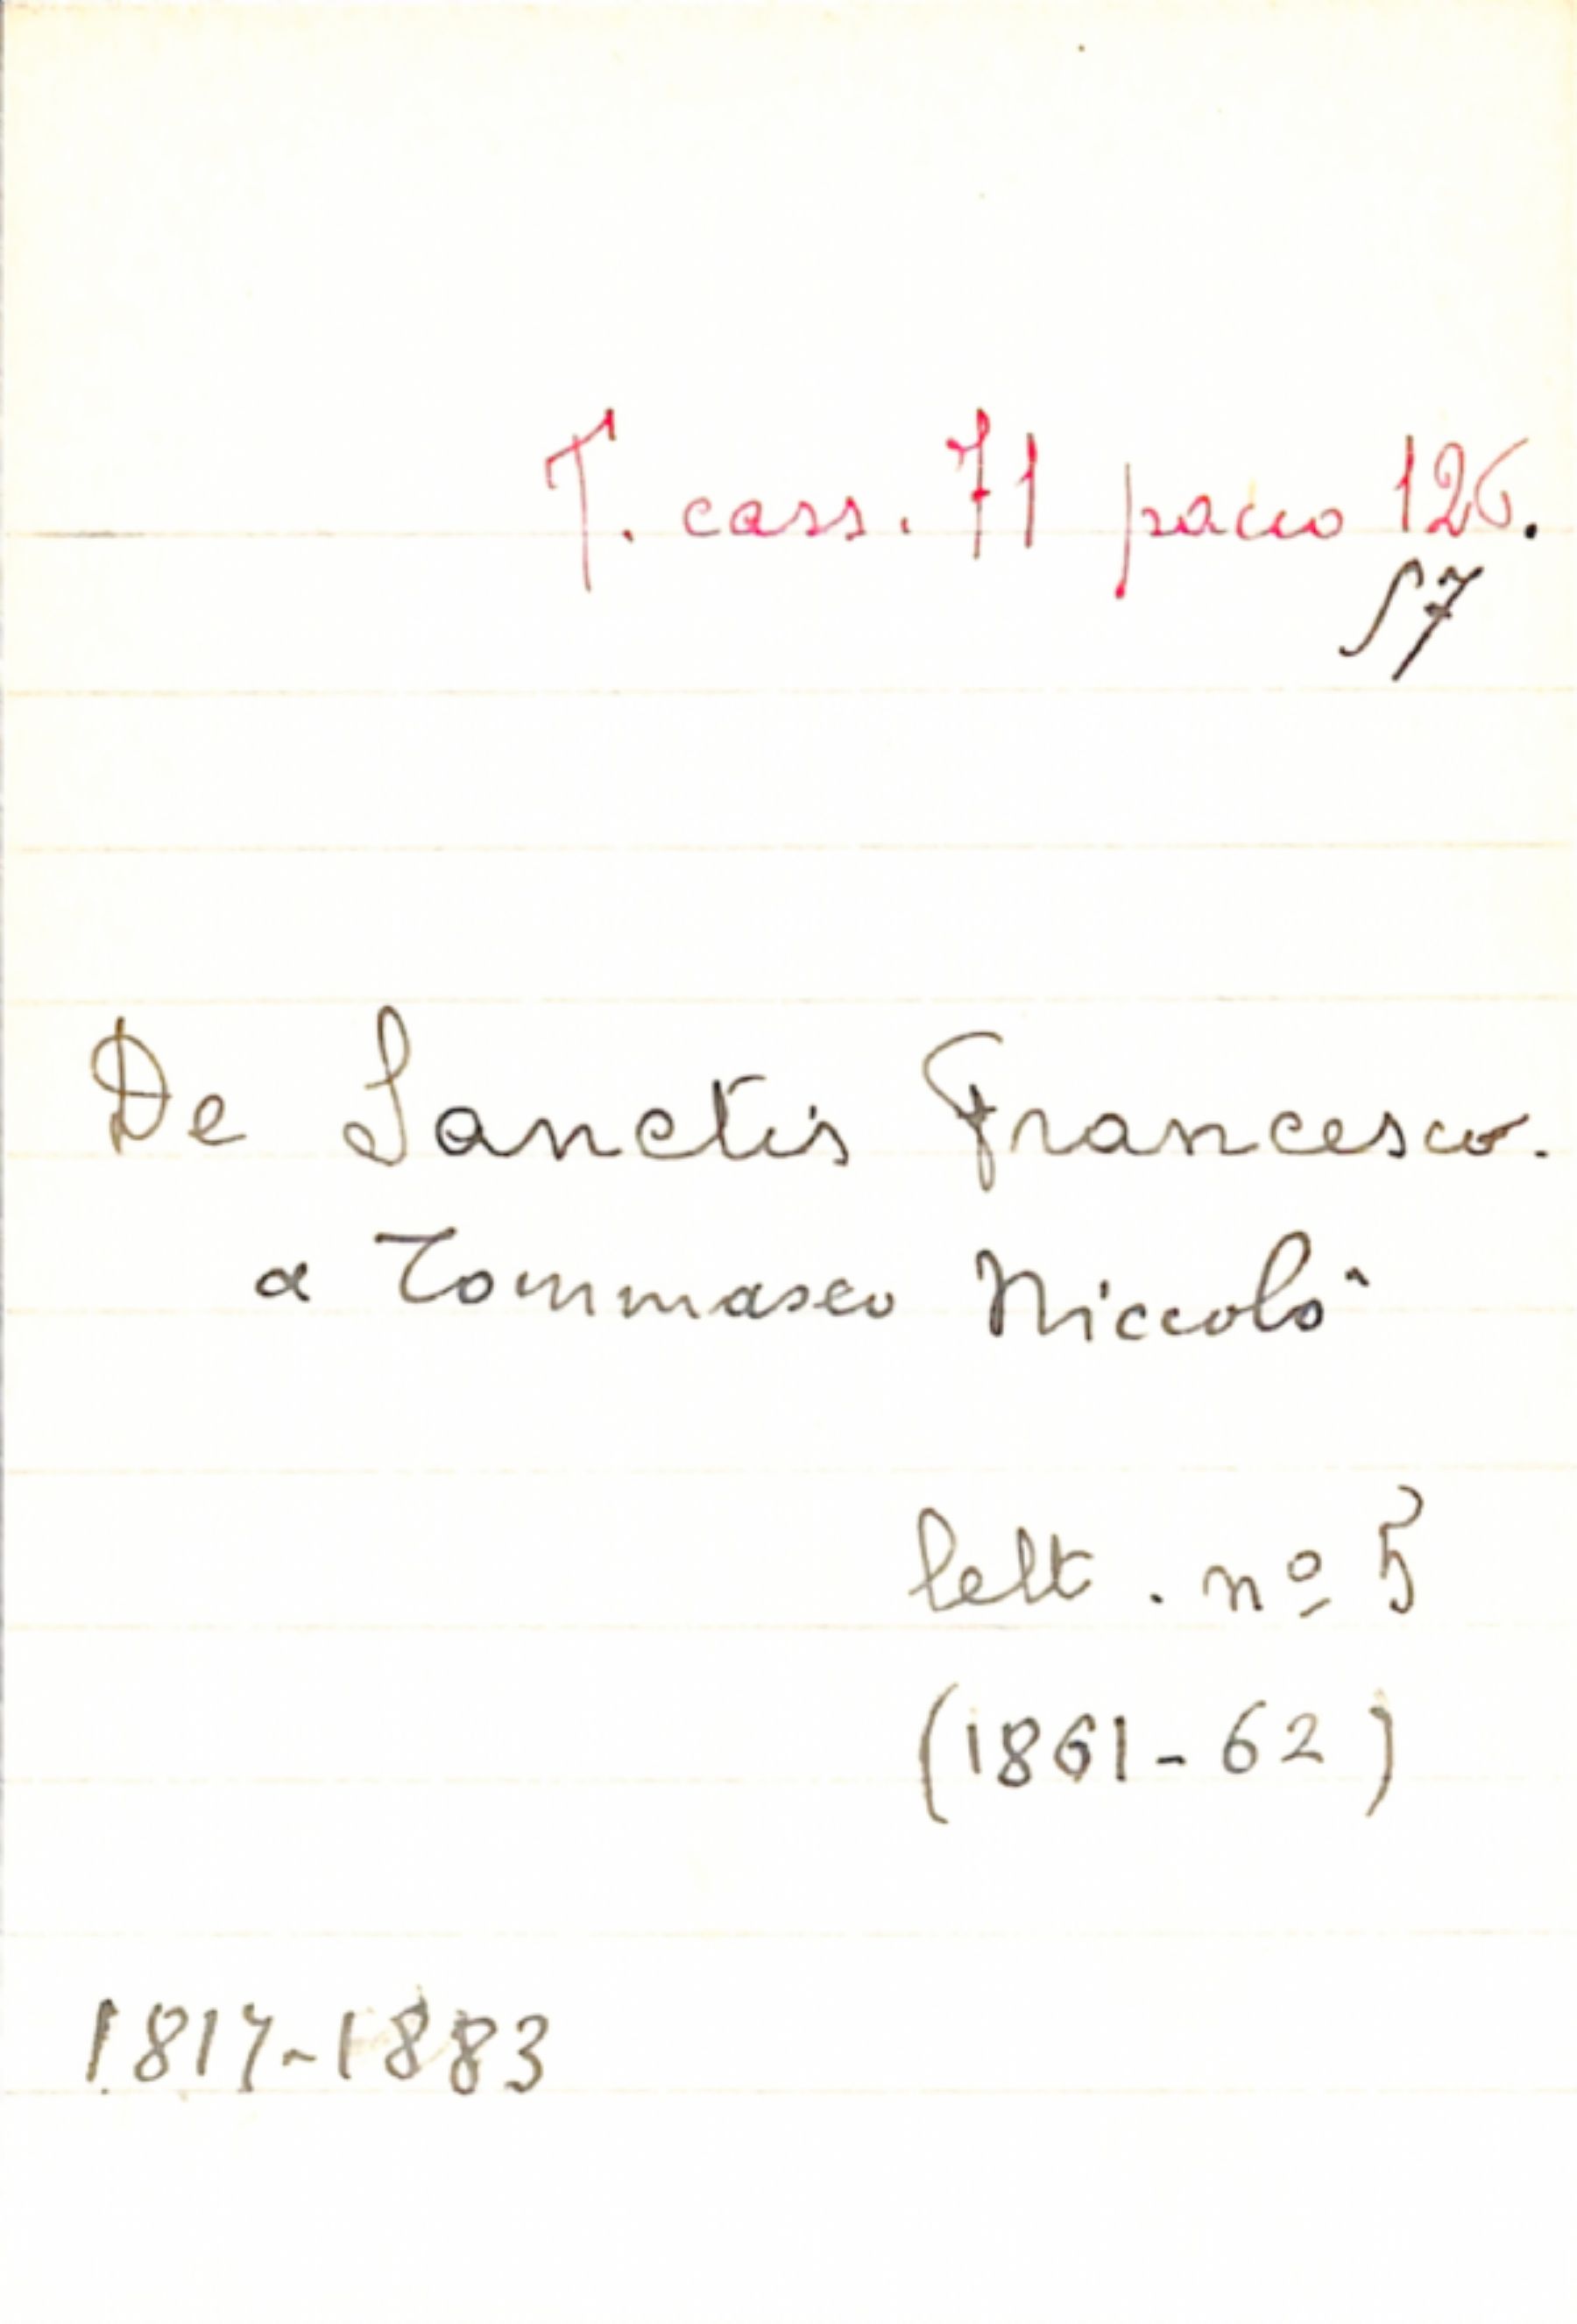 T. cass. 71 pacco 126.
57
De Sanctis Francesco.
a Tommaseo Niccolò
lett. nº 5
(1861-62)
1817-1883